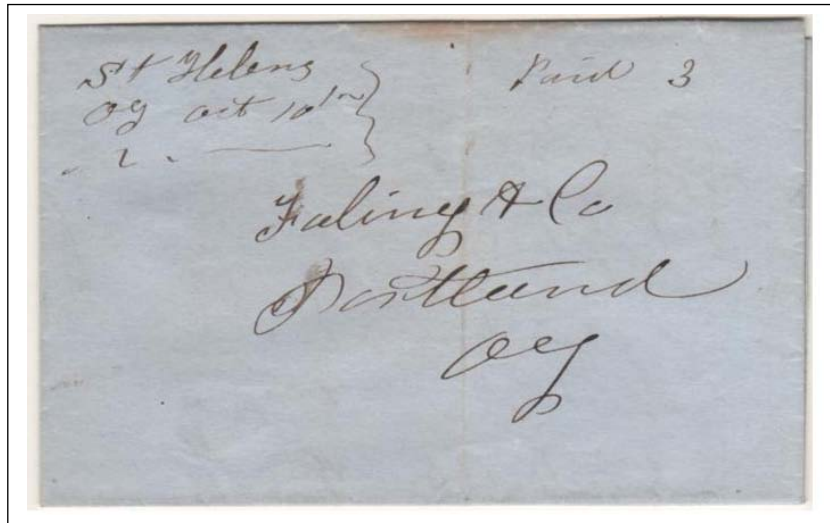 St Helens
Og Oct 10th
Paid 3
Failing & Co
Portland
Og